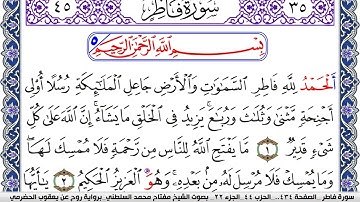 ٤٥ سُورَةُ فَاطِرٍ ٣٥
بِسْمِ اللَّهِ الرَّحْمَٰنِ الرَّحِيمِ
الْحَمْدُ لِلَّهِ فَاطِرِ السَّمَٰوَٰتِ وَالْأَرْضِ جَاعِلِ الْمَلَٰٓئِكَةِ رُسُلًا أُو۟لِىٓ
أَجْنِحَةٍ مَّثْنَىٰ وَثُلَٰثَ وَرُبَٰعَ ۚ يَزِيدُ فِى الْخَلْقِ مَا يَشَآءُ ۚ إِنَّ اللَّهَ عَلَىٰ كُلِّ
شَىْءٍ قَدِيرٌ ١ مَّا يَفْتَحِ اللَّهُ لِلنَّاسِ مِن رَّحْمَةٍ فَلَا مُمْسِكَ لَهَا ۖ
وَمَا يُمْسِكْ فَلَا مُرْسِلَ لَهُۥ مِنۢ بَعْدِهِۦ ۚ وَهُوَ الْعَزِيزُ الْحَكِيمُ ٢ يَٰٓأَيُّهَا
سورة فاطر الصفحة ٤٣٤.. الحزب ٤٤ الجزء ٢٢ بصوت الشيخ مفتاح محمد السلطني ..برواية روح عن يعقوب الحضرمي